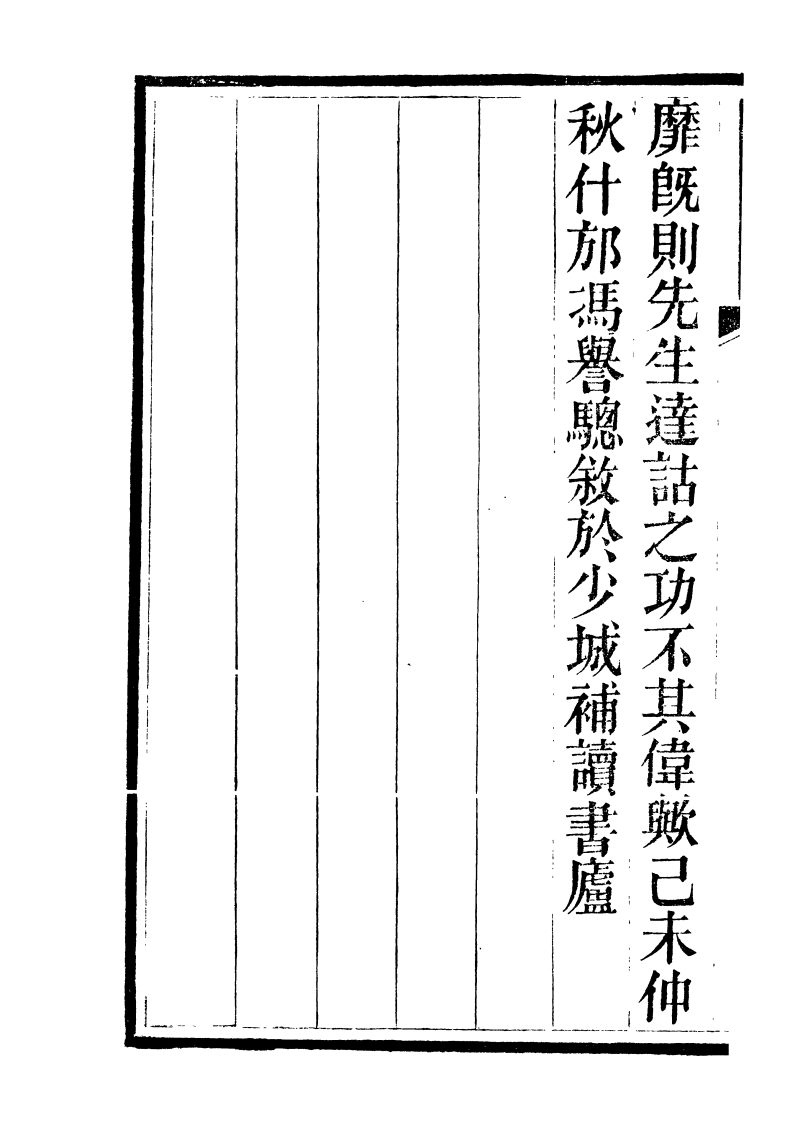 靡旣則先生達詁之功不其偉歟己未仲
秋什邡馮譽驄敘於少城補讀書廬